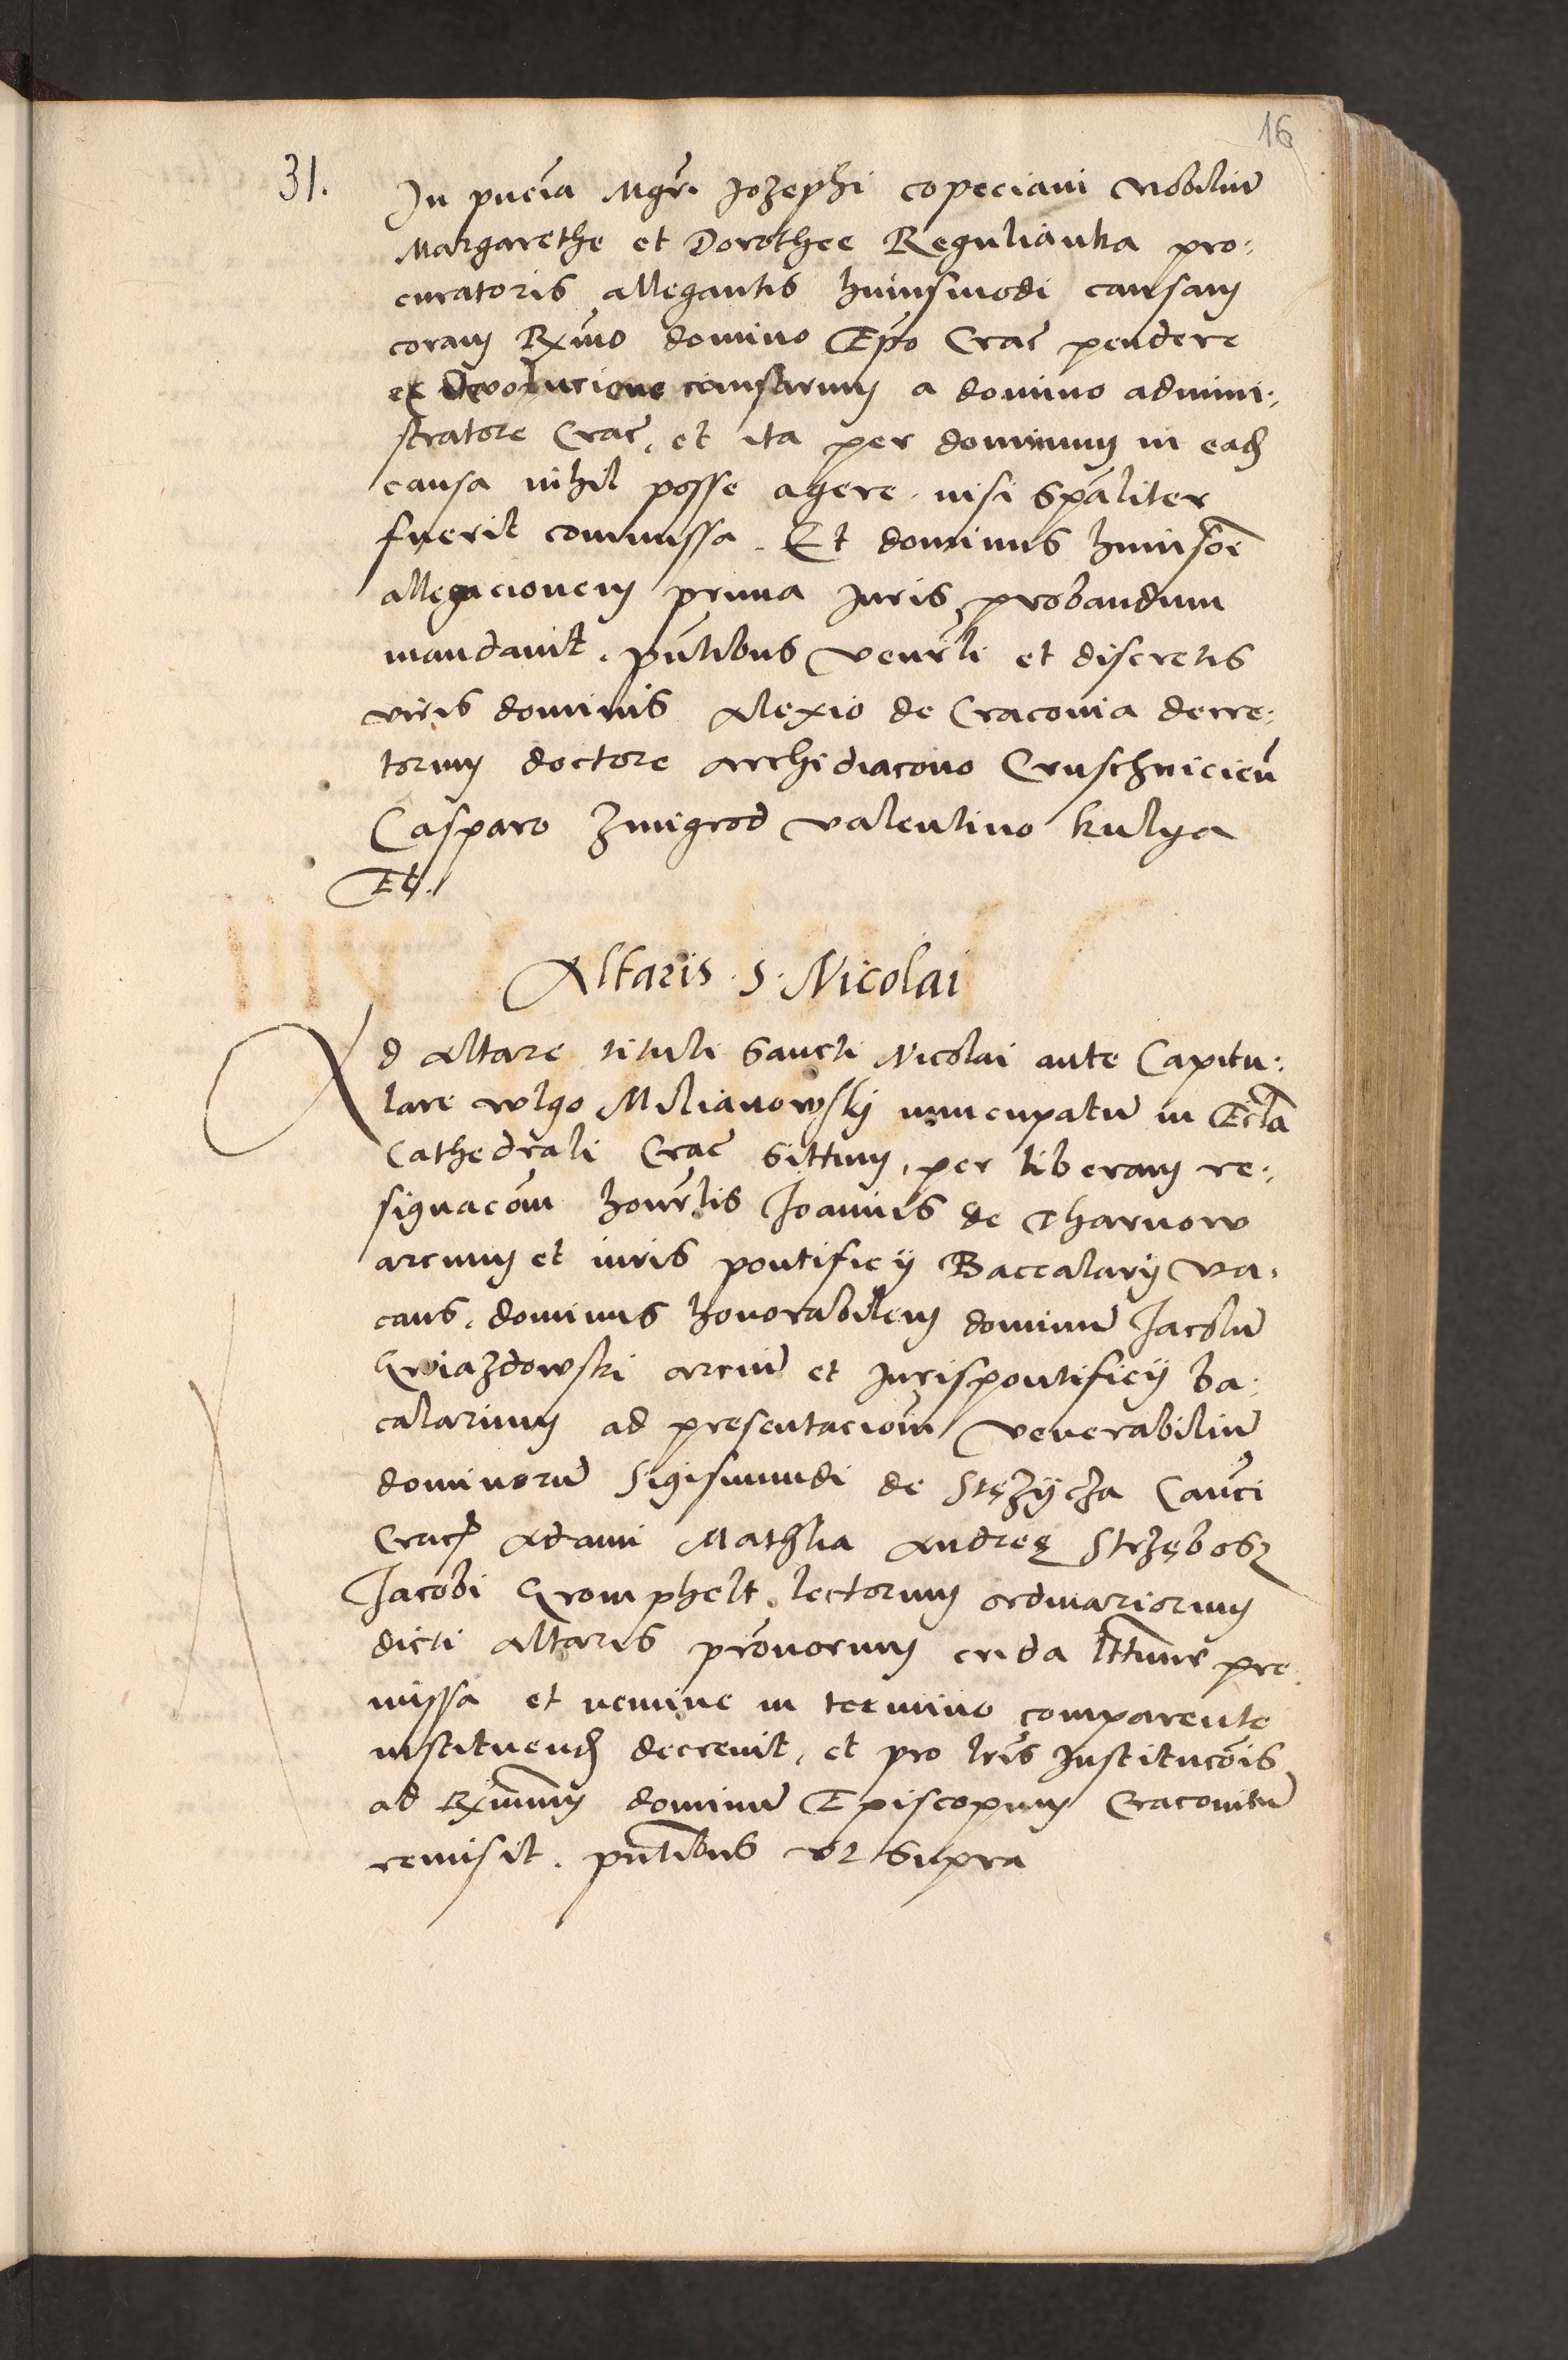 16
31.
In pn̄cia Mgr̄i Jozephi copeciani Nobiliū
Margarethe et Dorothee Regulianka pro:
curatoris allegantis huiusmodi causam
coram Rx̄mo domino Ep̄o Crac̄ pendere
ex devolucione causarum a domino admini:,
stratore Crac̄, et ita per dominum in ead
causa nihil posse agere, nisi sp̄aliter
fuerit commissa. Et dominus
allegacionem prima Juris probandum
mandavit. pn̄tibus Venr̄li et discretis
viris dominis Alexio de Cracovia decre:
torum doctore Archidiacono Cruschviciēn
Casparo Zmigrod Valentino kulga
Et.
Altaris . S . Nicolai
Ad Altare tituli Sancti Nicolai ante Capitu:
lare wlgo Milianowskij nuncupatū in Ecl̄a
Cathedrali Crac̄ sittum, per liberam re:,
signacōm honr̄lis Joannis de Tharnow
arcium et iuris pontificij Baccalarij va,
cans, dominus honorabilem dominū Jacobū
Gwiazdowski arciū et Jurispontificij ba:
calarium ad presentacioīm Venerabiliū
dominorū Sigismundi de Stężijcza Can̄ci
Crac̄ Adami Andreę Strzębosz
Jacobi Gromphelt, lectorum ordinariorum
dicti Altaris pr̄onorum crida ltt̄ime pre:
missa et nemine in termino comparente
instituend decrevit, et pro lr̄is Institucōis
ad Rx̄mum dominū Episcopum Cracovien̄
remisit. pn̄tibus vt supra